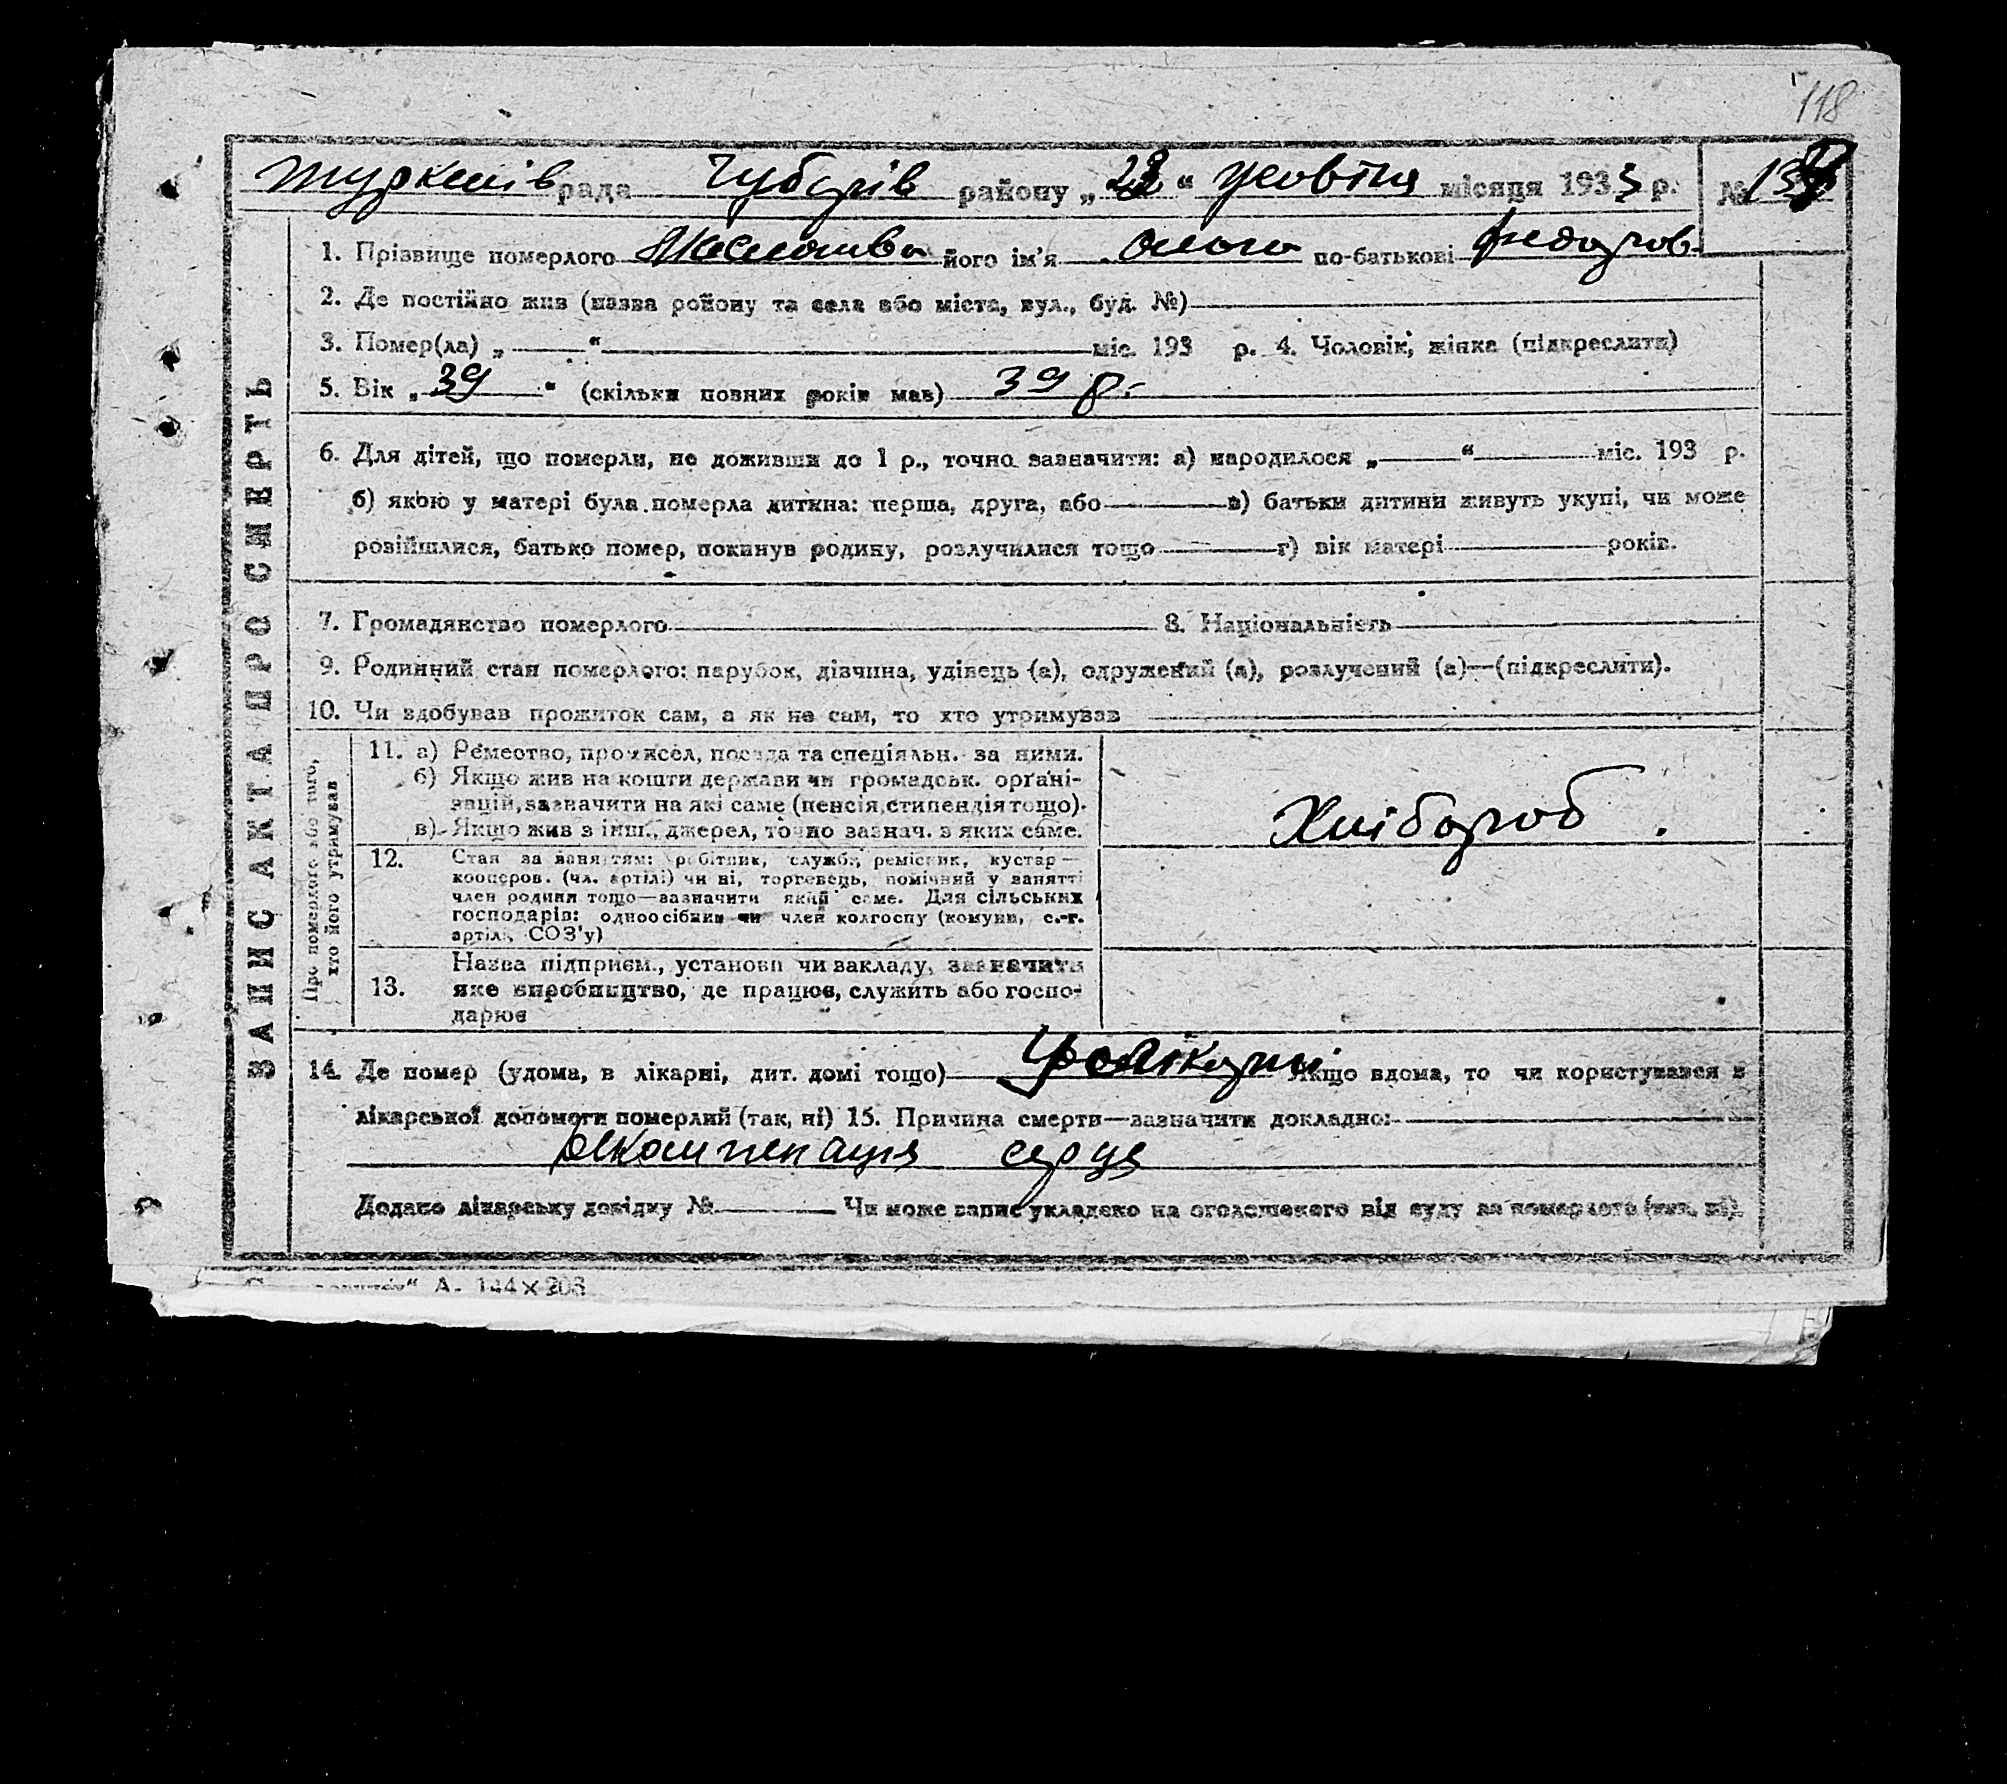 118
рада Чубарів району „ “ жовтня місяця 1933 р. №
1. Прізвище померлого його ім'я Ольга по-батькові Федоров.
2. Де постійно жив (назва району та села або міста, вул., буд. №)
3. Помер(ла) „ “ міс. 193 р. 4. Чоловік, жінка (підкреслити)
5. Вік „ 39 “ (скільки повних років мав) 39 р.
6. Для дітей, що померли, не доживши до 1 р., точно зазначити: а) народилося „ “ міс. 193 р.
б) якою у матері була померла дитина: перша, друга, або в) батьки дитини живуть укупі, чи може
розійшлися, батько помер, покинув родину, розлучилися тощо г) вік матері років.
7. Громадянство померлого 8. Національність
9. Родинний стан померлого: парубок, дівчина, удівець (а), одружений (а), розлучений (а)—(підкреслити).
10. Чи здобував прожиток сам, а як не сам, то хто утримував
ЗАПИС АКТА ПРО СМЕРТЬ
Про померлого або того,
хто його утримував
11. а) Ремество, промисел, посада та спеціяльн. за ними.
б) Якщо жив на кошти держави чи громадськ. орґані-
зацій, зазначити на які саме (пенсія, стипендія тощо).
в) Якщо жив з інш., джерел, точно зазнач. з яких саме.
Хлібороб.
12. Стан за заняттям: робітник, службв, ремісник, кустар—
кооперов. (чл. артілі) чи ні, торговець, помічний у занятті
член родини тощо—зазначити який саме. Для сільських
господарів: одноосібник чи член колгоспу (комуни, с.-г.
артілі, СОЗ'у)
13. Назва підприєм., установи чи закладу, зазначити
яке виробництво, де працює, служить або госпо-
дарює
14. Де помер (удома, в лікарні, дит. домі тощо) У лікарні Якщо вдома, то чи користувався з
лікарської допомоги померлий (так, ні) 15. Причина смерти—зазначити докладно:
серця
Додано лікарську довідку № Чи може запис укладено на оголошеного від суду за померлого (так, ні).
А. 144×203